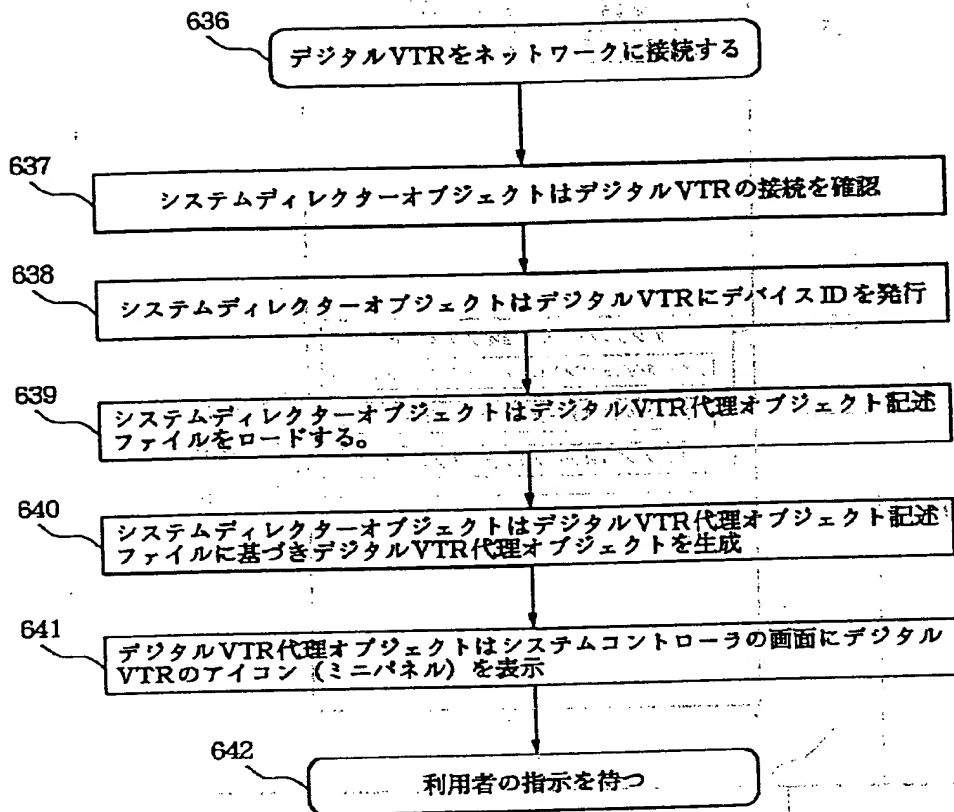 636
デジタルVTRをネットワークに接続する
637
システムディレクターオブジェクトはデジタルVTRの接続を確認
638
システムディレクターオブジェクトはデジタルVTRにデバイスIDを発行
639
システムディレクターオブジェクトはデジタルVTR代理オブジェクト記述
ファイルをロードする。
640
システムディレクターオブジェクトはデジタルVTR代理オブジェクト記述
ファイルに基づきデジタルVTR代理オブジェクトを生成
641
デジタルVTR代理オブジェクトはシステムコントローラの画面にデジタル
VTRのアイコン（ミニパネル）を表示
642
利用者の指示を待つ